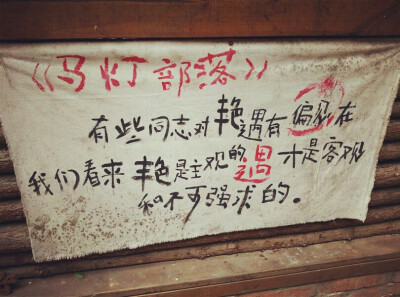 《马灯部落》
有些同志对艳遇有偏见在
我们看来艳是主观的遇才是客观
和不可强求的。